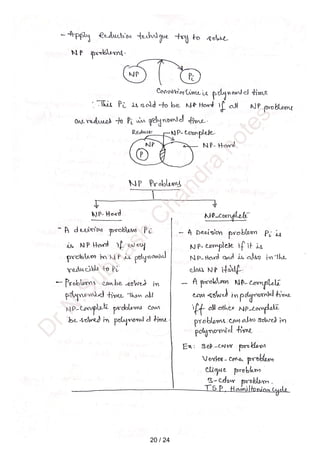 - Apply Reduction technique try to solve
NP problems.
NP
Pi
Conversion time is polynomial time
: This Pi is said to be NP Hard if all NP problems
are reduced to Pi in polynomial time.
Reduce
NP-Complete
NP
NP-Hard
P
NP Problems
NP-Hard
- A decision problem Pi
is NP Hard if every
problem in NP is polynomial
reducible to Pi
- Problems can be solved in
polynomial time Than all
NP-Complete problems can
be solved in polynomial time.
NP-Complete
- A Decision problem Pi is
NP-Complete if it is
NP-Hard and is also in the
class NP itself.
- A problem NP-Complete
can solved in polynomial time
iff all other NP-Complete
problems can also solved in
polynomial time
Ex: Set-cover problem
Vertex-Cover problem
Clique problem
3-Colour problem.
T.S.P, Hamiltonian Cycle
Chandra Notes
20 / 24